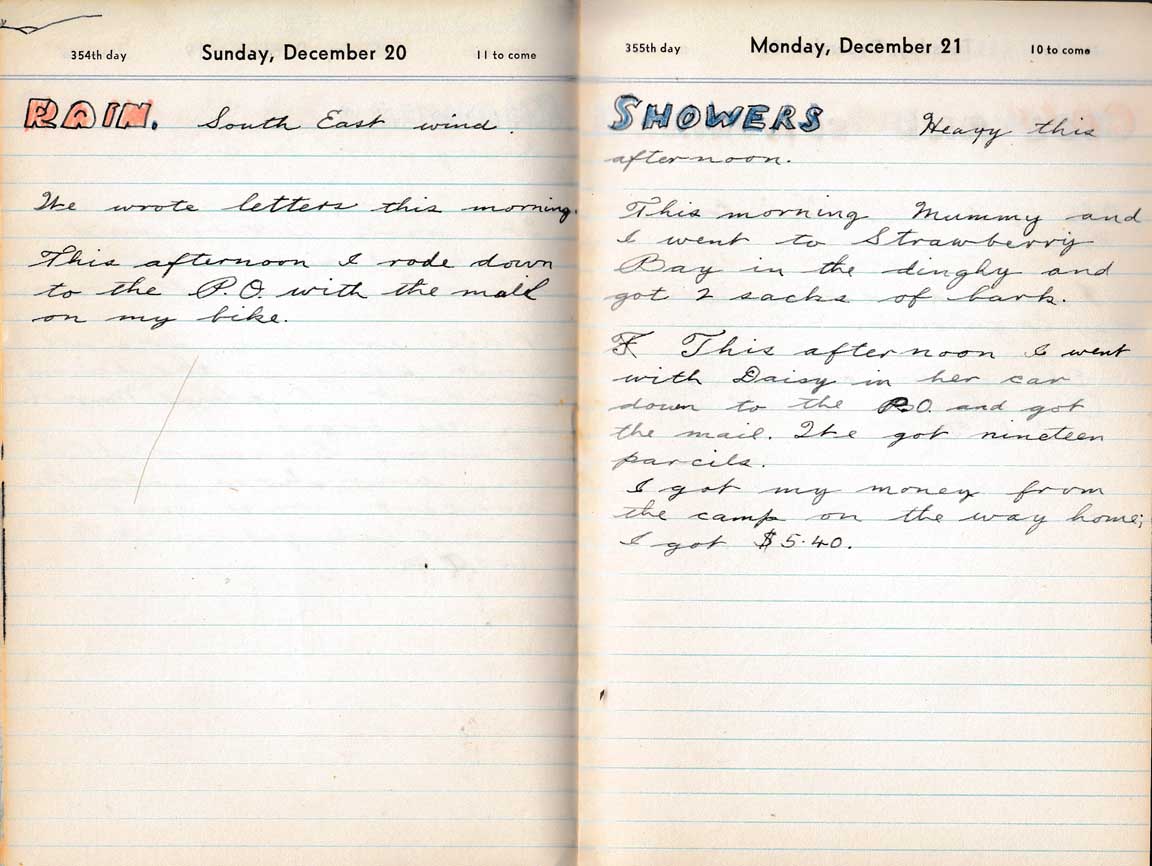 354th day Sunday, December 20 11 to come
RAIN. South East wind.
We wrote letters this morning.
This afternoon I rode down
to the P.O. with the mail
on my bike.
355th day Monday, December 21 10 to come
SHOWERS Heavy this
afternoon.
This morning Mummy and
I went to Strawberry
Bay in the dinghy and
got 2 sacks of bark.
This afternoon I went
with Daisy in her car
down to the P.O. and got
the mail. We got nineteen
parcils.
I got my money from
the camp on the way home;
I got $5.40.